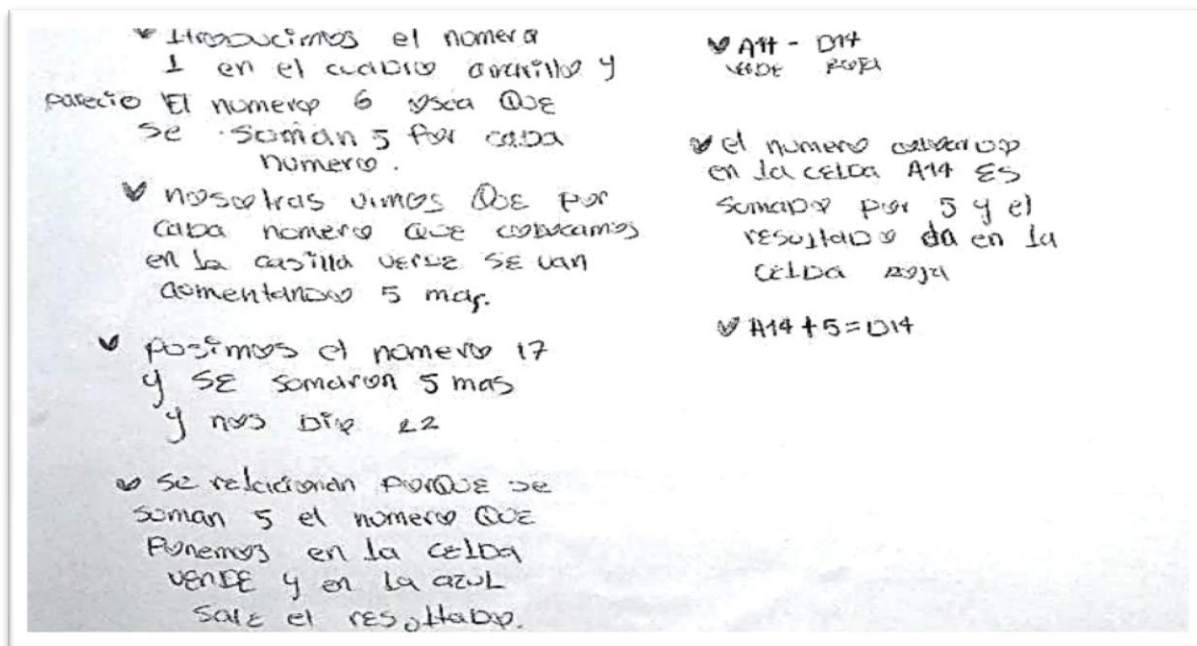 Itroducimos el numero
1 en el cuadro amarillo y
parecio El numero 6 osea QuE
se suman 5 por cada
numero.
nosotras vimos QuE por
cada numero QuE colocamos
en la casilla verde SE van
aumentando 5 mas.
pusimos el numero 17
y SE sumaron 5 mas
y nos Dio 22
se relacionan porQuE se
suman 5 el numero QuE
Ponemos en la celda
VERDE y en la azul
sale el resultado.
A14 - D14
VERDE ROJA
el numero colocado
en la celda A14 ES
sumado por 5 y el
resultado da en la
celda roja
A14 + 5 = D14